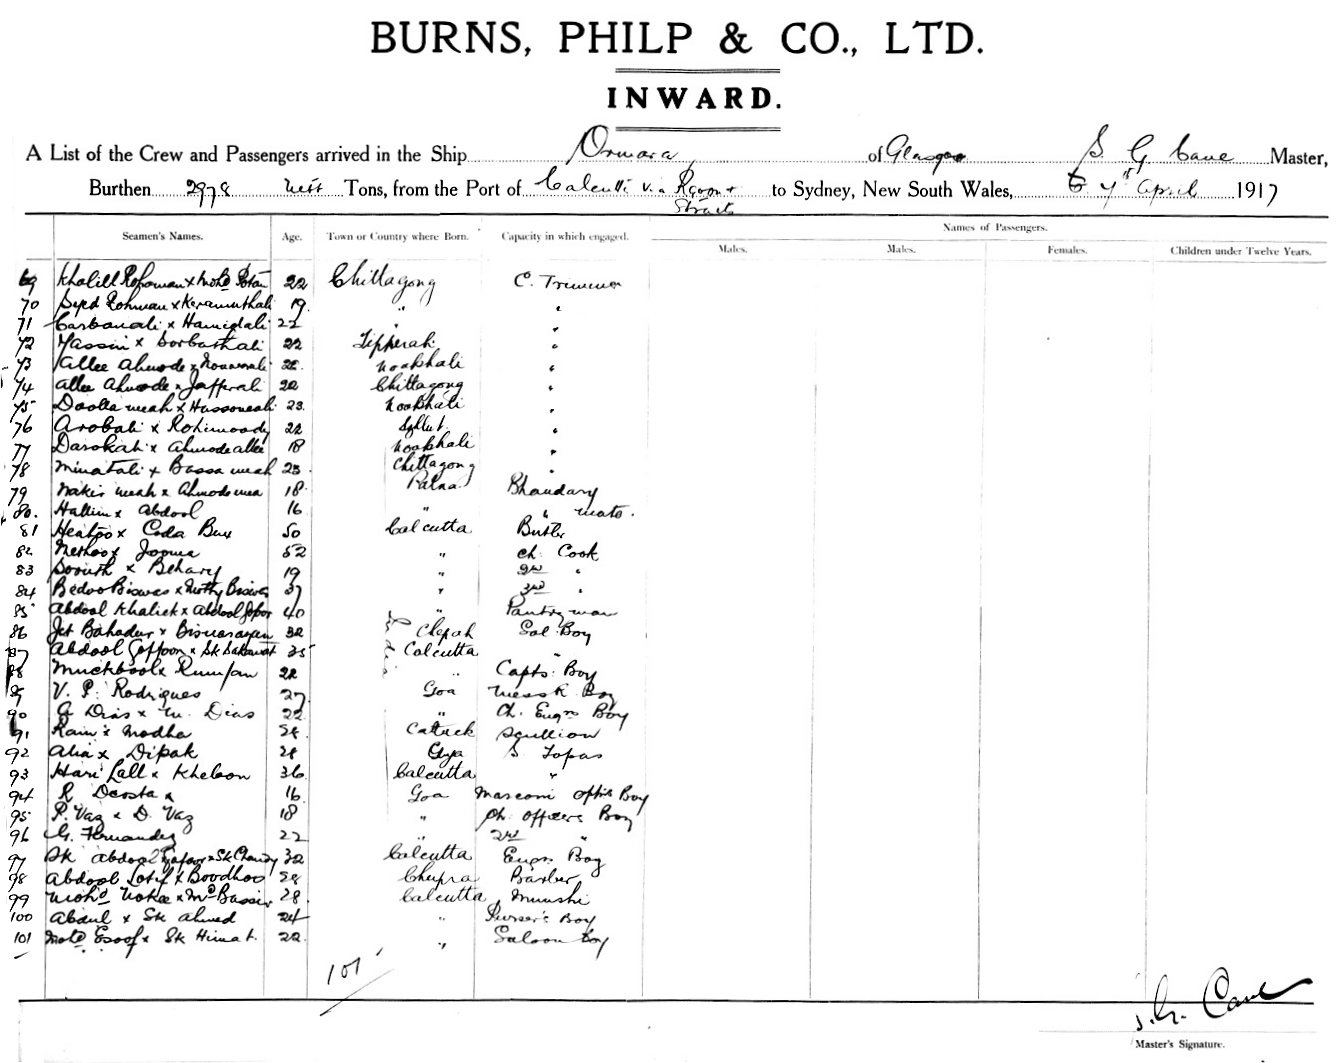 BURNS, PHILP & CO., LTD.
INWARD.
A List of the Crew and Passengers arrived in the Ship Ormara of Glasgow S. G. Cave Master,
Burthen 2978 nett Tons, from the Port of Calcutta via Rgoon & to Sydney, New South Wales, 7th April 1917
Straits
Names of Passengers.
Seamen's Names. Age. Town or Country where Born. Capacity in which engaged. Males. Males. Females. Children under Twelve Years.
69 Khalill x 22 Chittagong C. Trimmer
70 Syed Rohman x Keramuthali 19 " "
71 x Hamidali 22 " "
72 Yassin x 22 Tipperah "
73 Allee Ahmode x 22 Noakhali "
74 Allee Ahmode x Jafferali 22 Chittagong "
75 Daolla meah x 23 Noakhali "
76 Arobali x 22 Syllut "
77 x Ahmode allee 18 Noakhali "
78 Minatali x Bassa meah 25 Chittagong "
79 x 18 Patna Bhandary
80. Hallim x Abdool 16 " " mate.
81 x Coda Bux 50 Calcutta Butler
82 x Jooma 52 " Ch. Cook
83 x Behary 19 " 2nd "
84 Bedoo Biswas x Biswas 37 " 3rd "
85 Abdool Khaliek x Abdool 40 " Pantryman
86 Jit Bahadur x 32 Sal. Boy
87 Abdool Goffoor x Sk 35 Calcutta "
88 Muckbool x Rumjan 22 " Capts. Boy
89 V. P. Rodrigues 27 Goa Messk Boy
90 A Dias x M. Dias 22 " Ch. Engrs Boy
91 Ram x Modho Cuttack Scullion
92 Alia x Dipak 28 Gya S. Topas
93 Hari Lall x Kheloon 36 Calcutta "
94 R Dcosta x 16 Goa Marconi Boy
95 P. Vaz x D. Vaz 18 " Ch. officers Boy
96 G. Fernandez 22 " 2nd "
97 Sk Abdool Gafoor x Sk 32 Calcutta Engrs Boy
98 Abdool Lotif x Boodhoo 28 Chupra Barber
99 Mohd x Md Bassir 28 Calcutta Munshi
100 Abdul x Sk Ahmed 24 " Purser's Boy
101 Mohd Esoof x Sk Himat. 22 " Saloon Boy
101
S. G. Cave
Master's Signature.